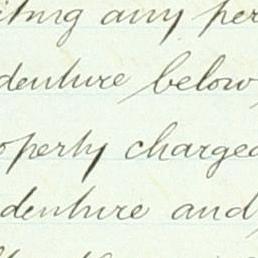 any per
denture below
operty charged
denture and